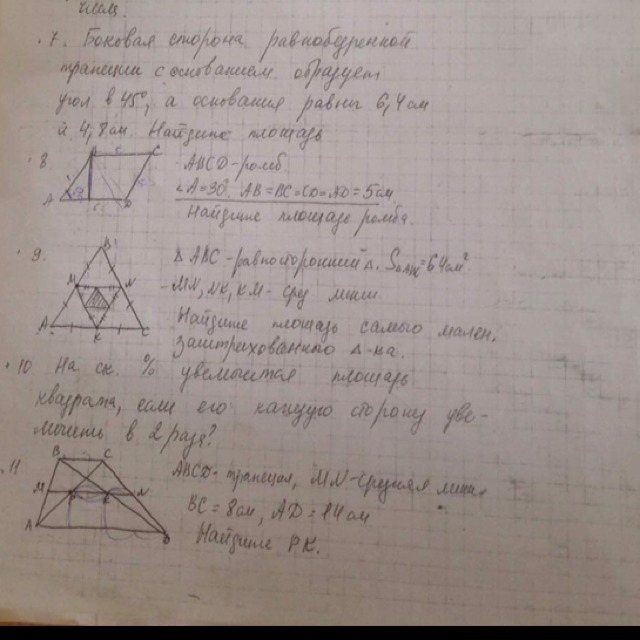 7. Боковая сторона равнобедренной
трапеции с основанием образует
угол в 45°, а основания равны 6,4 см
и 4,8 см. Найдите площадь
8.
C
A
D
ABCD - ромб
∠A=30°, AB=BC=CD=AD=5см
Найдите площадь ромба.
9.
B
M
N
A
K
C
Δ ABC - равносторонний Δ. S =64см²
MN, NK, KM - сред линии.
Найдите площадь самого мален.
заштрихованного Δ-ка.
10 На ск. % увеличится площадь
квадрата, если его каждую сторону уве-
личить в 2 раза?
11
B
C
M
N
A
D
ABCD - трапеция, MN - средняя линия
BC = 8см, AD = 14см
Найдите PK.